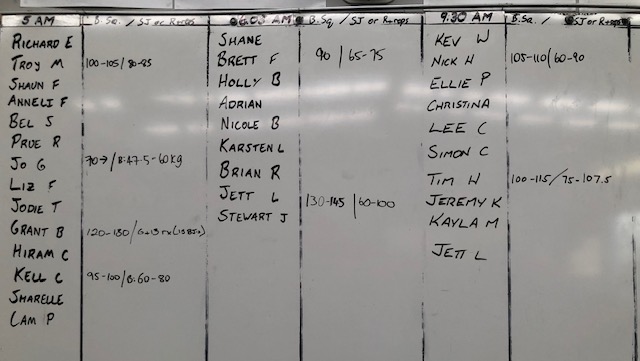 5 AM B.Sq. / SJ or R+reps
RICHARD E
TROY M 100-105/80-85
SHAUN F
ANNELI F
BEL S
PRUE R
JO G 70→/B:47.5-60kg
LIZ F
JODIE T
GRANT B 120-130/
HIRAM C
KELL C 95-100/B:60-80
SHARELLE
CAM P
06:03 AM B.Sq / SJ or R+reps
SHANE
BRETT F 90 / 65-75
HOLLY B
ADRIAN
NICOLE B
KARSTEN L
BRIAN R
JETT L 130-145 / 60-100
STEWART J
9:30 AM B.Sq. / SJ or R+reps
KEV W
NICK H 105-110/60-90
ELLIE P
CHRISTINA
LEE C
SIMON C
TIM W 100-115/75-107.5
JEREMY K
KAYLA M
JETT L